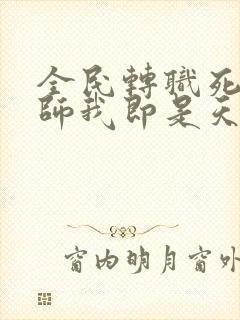 全民轉職死
師我即是天
窗内明月窗外